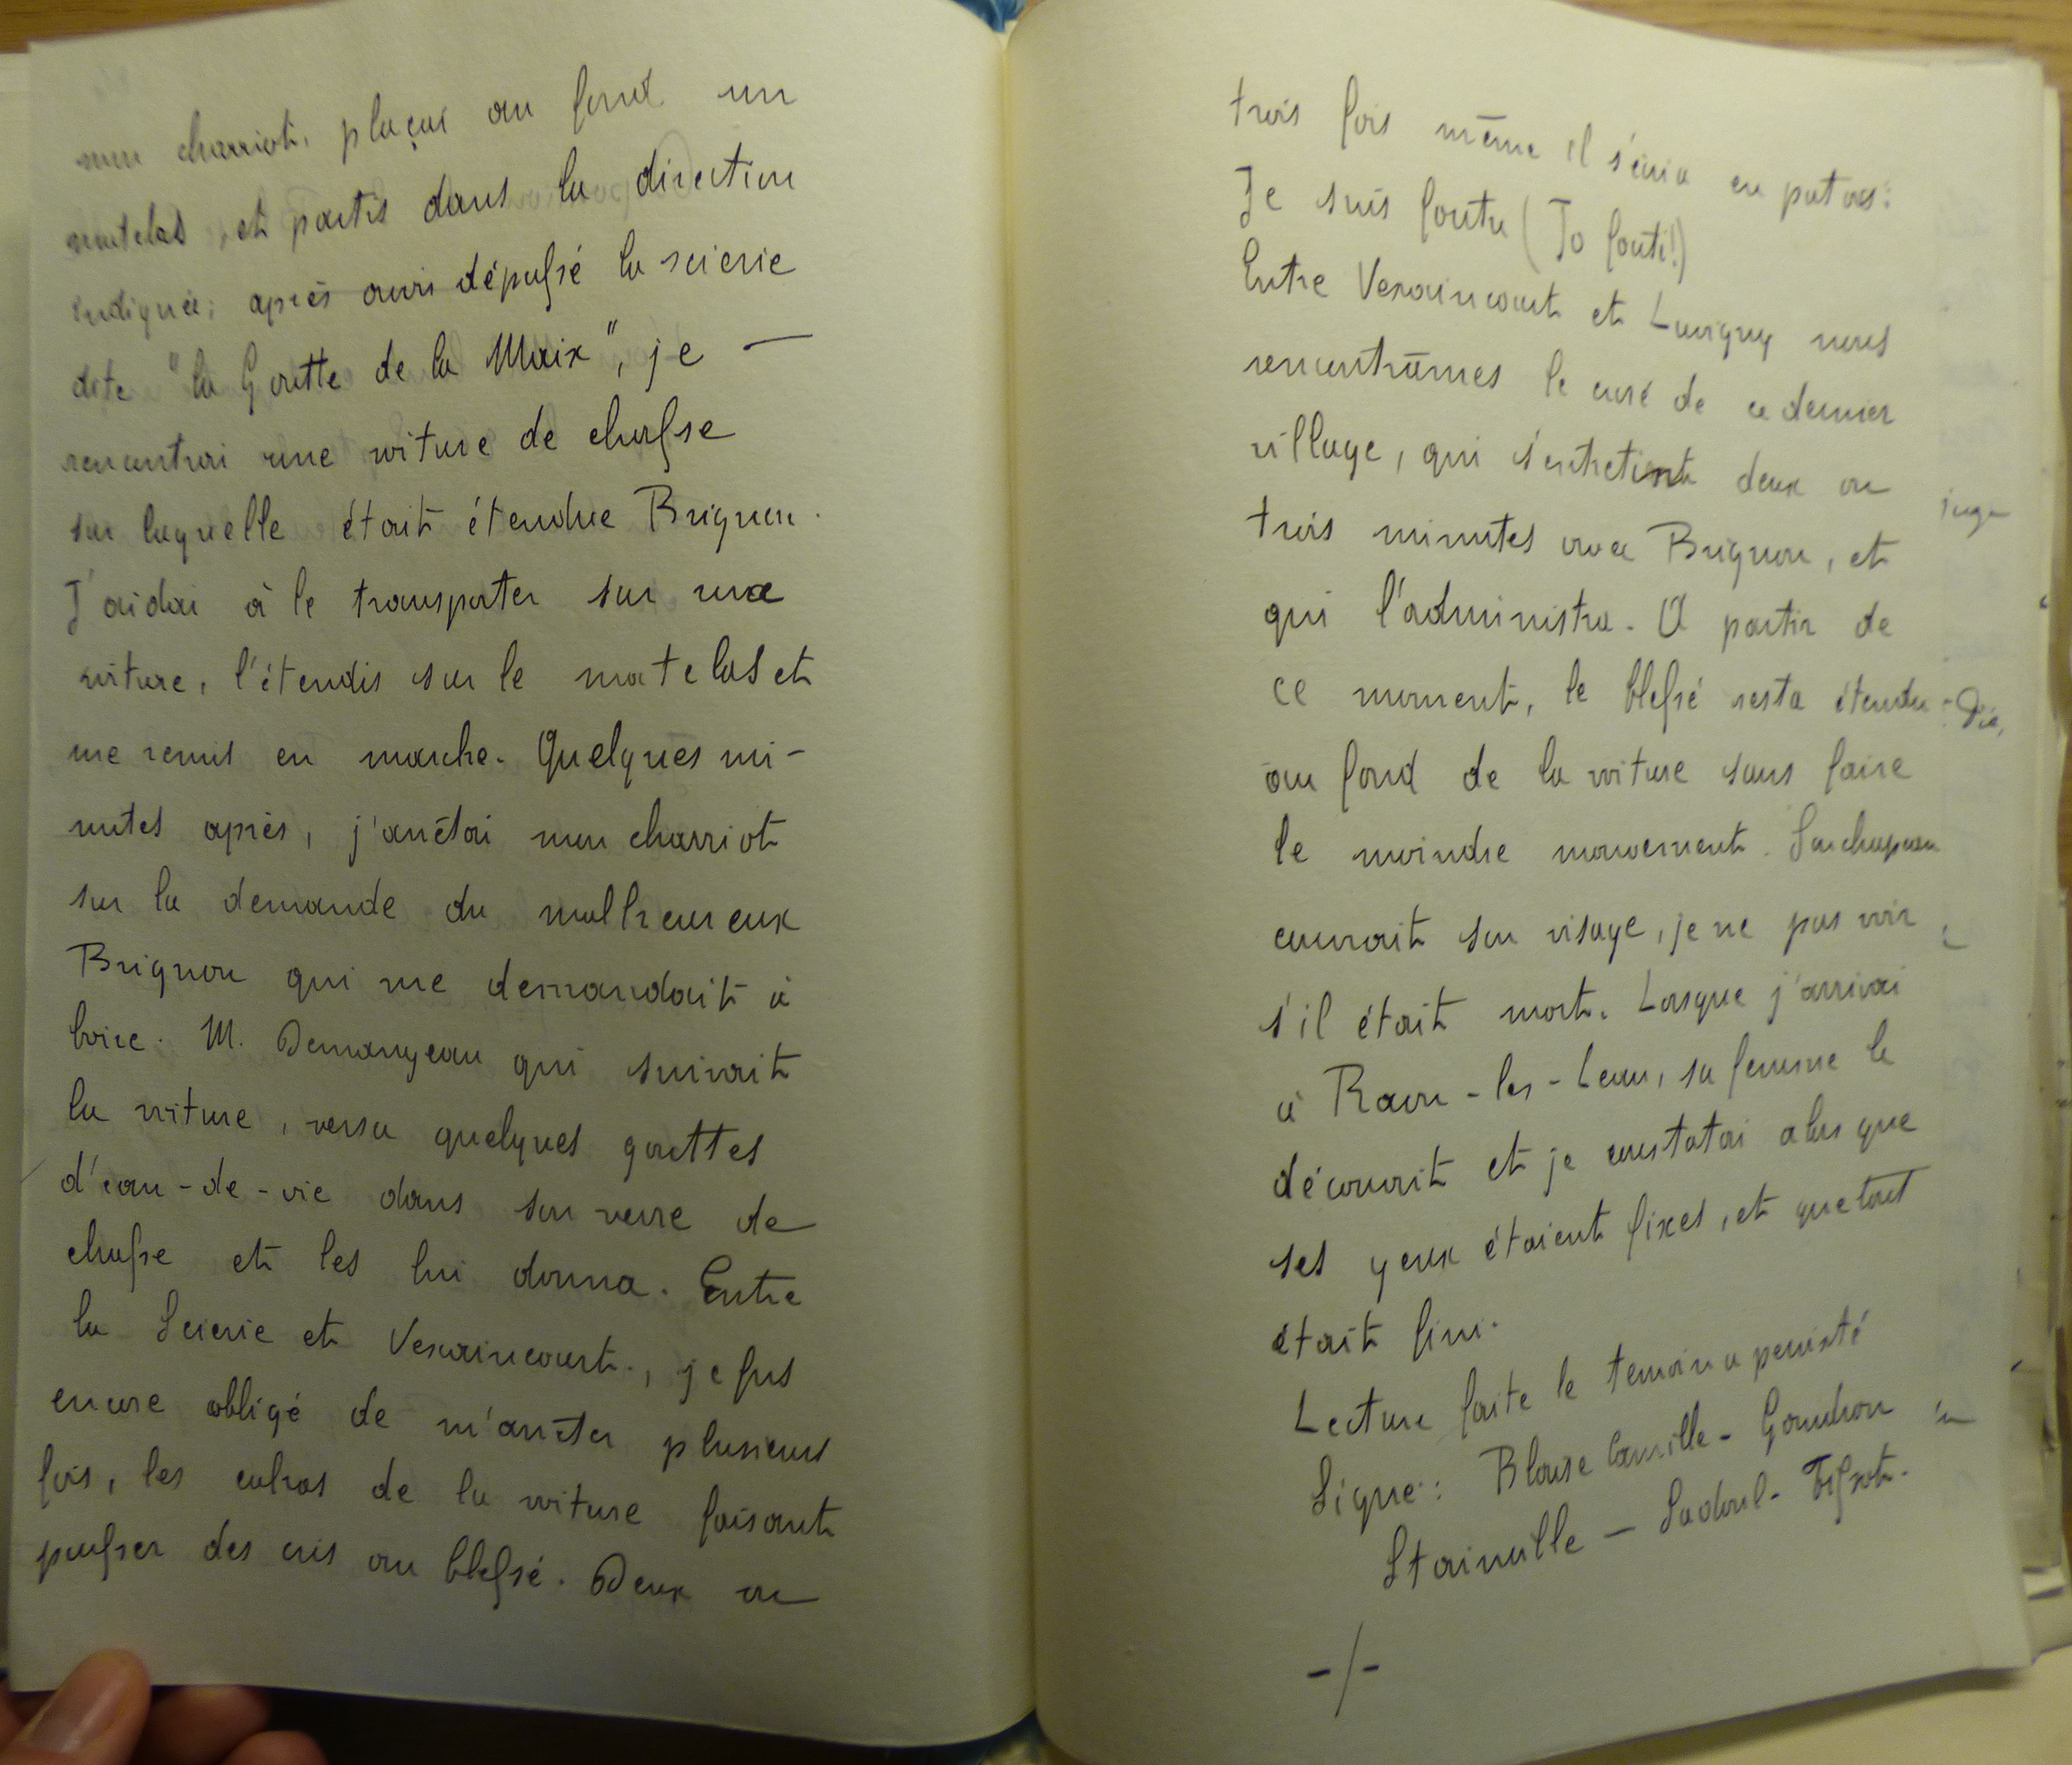 mon charriot, plaçai au fond un
matelas, et partis dans la direction
indiquée; après avoir dépassé la scierie
dite "la Goutte de la Maix", je —
rencontrai une voiture de chasse
sur laquelle était étendue Brignon.
J'aidai à le transporter sur ma
voiture, l'étendis sur le matelas et
me remis en marche. Quelques mi-
nutes après, j'arrêtai mon charriot
sur la demande du malheureux
Brignon qui me demandait à
boire. M. Demangeau qui suivait
la voiture, versa quelques gouttes
d'eau-de-vie dans son verre de
chasse et les lui donna. Entre
la Scierie et Vexaincourt, je fus
encore obligé de m'arrêter plusieurs
fois, les cahos de la voiture faisant
pousser des cris au blessé. Deux ou
trois fois même il s'écria en patois:
Je suis foutu (Jo fouti!)
Entre Vexaincourt et Luvigny nous
rencontrâmes le curé de ce dernier
village, qui s'entretint deux ou
trois minutes avec Brignon, et
qui l'administra. A partir de
ce moment, le blessé resta étendu
au fond de la voiture sans faire
le moindre mouvement. Son chapeau
couvrait son visage, je ne pus voir
s'il était mort. Lorsque j'arrivai
à Raon-les-Leau, sa femme le
découvrit et je constatai alors que
ses yeux étaient fixes, et que tout
était fini.
Lecture faite le temoin a persisté
Signé: Blaise Camille - Goudron
Stainville — Sadoul -
-/-